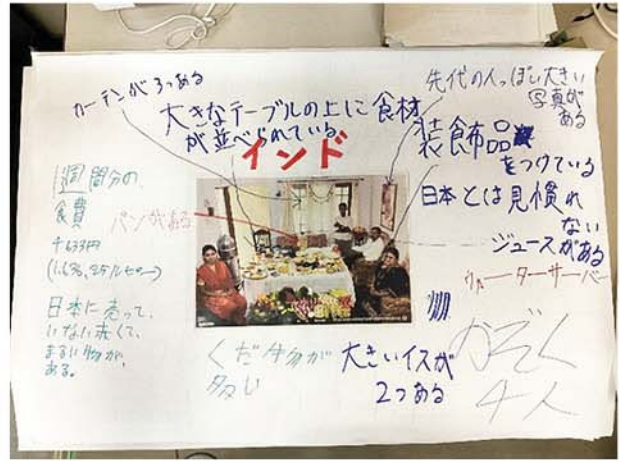 カーテンが3つある
大きなテーブルの上に食材
が並べられている
インド
先代の人っぽい大きい
写真が
ある
装飾品
をつけている
日本とは見慣れ
ない
ジュースがある
ウォーターサーバー
1週間分の
食費
(1,636,25ルピー)
パンがある
日本に売って、
いない赤くて、
まるい物が、
ある。
くだ物が
多い
大きいイスが
2つある
かぞく
4人